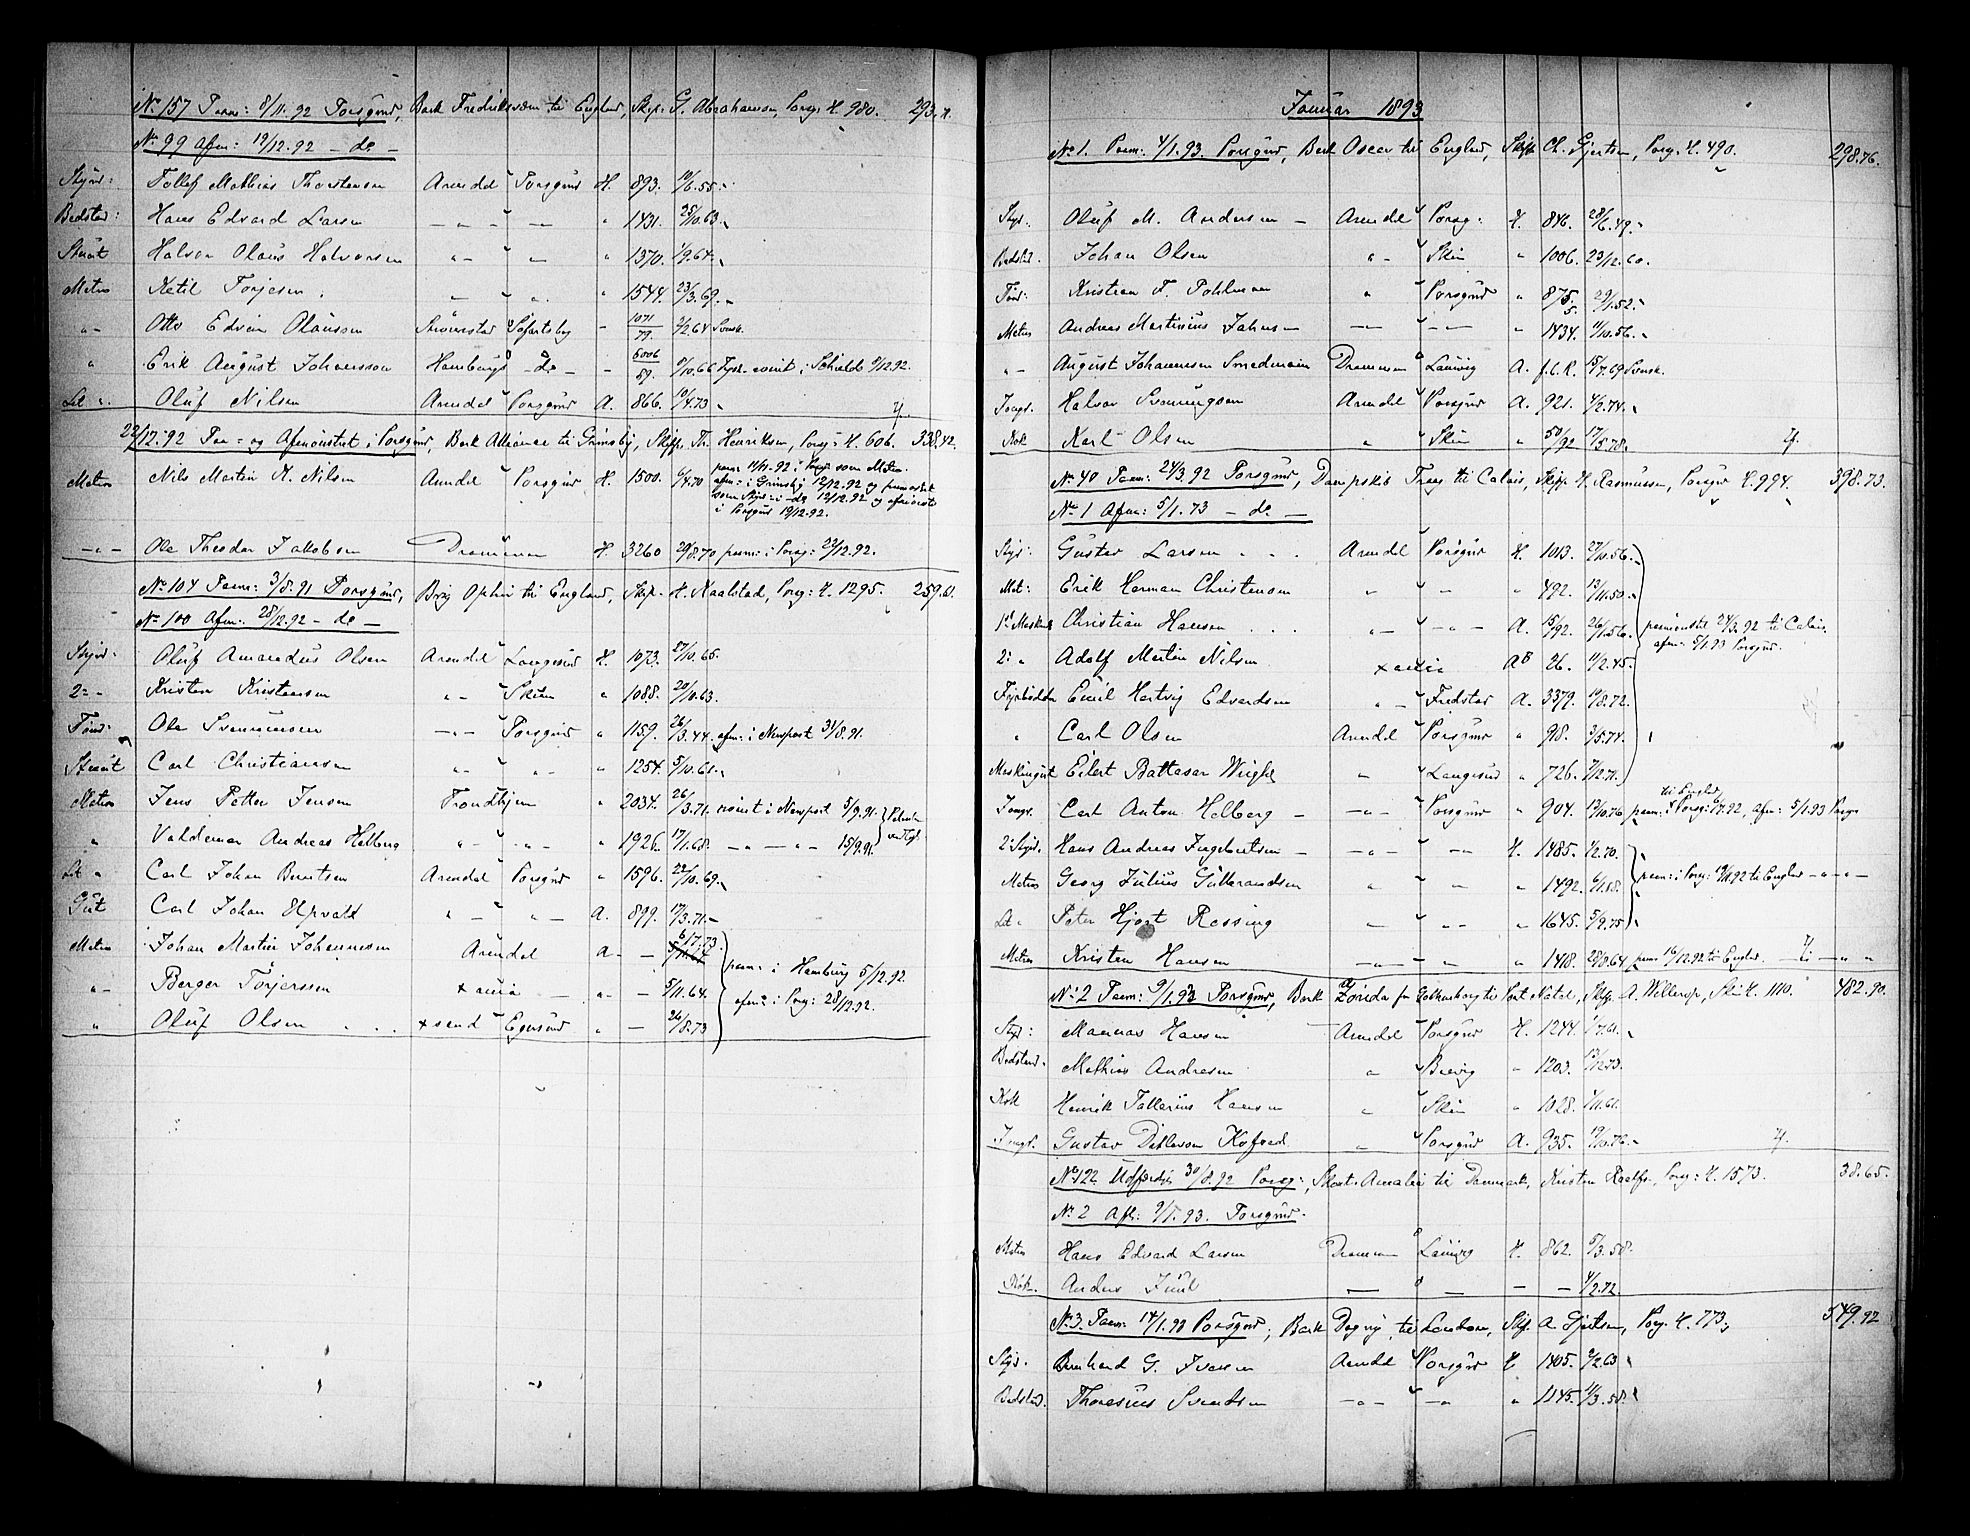 No 157 Paam: 8/11.92 Porsgrund, Bark Fredriksværn til England, Skip. G. Abrahamsen, Porsg. H. 980. 293.
No 99 Afm: 19/12.92 - do -
Styrm: Tollef Mathias Thorstensen Arendal Porsgrund H. 893. 10/6.55.
Bedstm: Hans Edvard Larsen - " - - " - " 1431. 25/10.63.
Stuart Halvor Olaus Halvorsen " - " - " 1370. 1/9.64.
Matros Ketil Torjesen " " " 1544. 23/3.69.
" - Otto Edvin Olausson Strömstad Söfartsby - 1071/79. 2/2.64 Svensk.
" Erik August Johansson Hamburg - do - - 6006/89. 9/10.66 Tysk. i Schields 9/12.92.
Let " Oluf Nilsen Arendal Porsgrund A. 866. 10/4.73
22/12.92 Paa- og Afmönstret i Porsgrund, Bark Alliance til Grimsby, Skip. Th. Henriksen, Porsg: H. 606. 338.42.
Matros Nils Martin A. Nilsen Arendal Porsgrund H. 1500. 6/4.70 paam: 14/11-92 i Porsgr som Matros.
afm: i Grimsby 12/12.92 og paamönstret
som Styrm: i do 12/12.92 og afmönstr
i Porsgrund 19/12.92.
- " - Ole Theodor Jakobsen Drammen H. 3260 29/8.70 paam: i Porsg: 22/12.92.
No 104 Paam: 3/8.91 Porsgrund, Brig Ophir til England, Skip. H. Kaalstad, Porsg: H. 1295. 259.61.
No 100 Afm: 28/12.92 - do -
Styrm: Oluf Amandus Olsen Arendal Langesund H. 1073. 27/10.65.
2: - Kristen Kristensen " - Skien " 1088. 20/10.63.
Töm: Ole Svennungsen - " - Porsgrund " 1159. 26/3.44. afm: i Newport 31/8.91.
Stuart Carl Christiansen " " " 1254. 5/10.61.
Matros Jens Petter Jensen Trondhjem " 2034. 26/3.71. römt i Newport 5/9.91.
" Valdemar Andreas Helberg " - " - " 1926. 17/1.68. - " - " - 15/9.91.
Let " Carl Johan Berntsen Arendal Porsgrund " 1596. 22/10.69.
Gut Carl Johan Opvold " - " - A. 899. 17/3.71.
Matros Johan Martin Johannesen Arendal A. - 6/7.73. 5/11.64
" - Berger Torjersen xania - " - 5/11.64. paam: i Hamburg 5/12.92.
" Oluf Olsen xsand Egersund " - 26/8.73 afm: i Porsg: 28/12.92.
Januar 1893
No 1. Paam: 4/1.93. Porsgrund, Bark Oscar til England, Skip. Ch. Gjertsen, Porsg. H. 490. 298.76.
Styr. Oluf M. Andersen - Arendal Porsg: H. 846. 28/6.49.
Bedstm. Johan Olsen " - Skien " 1006. 23/12.60.
Töm: Kristian F. Pohlman " Porsgrund " 875. 29/1.52.
Matros Andreas Martinius Jahnsen - " - - " - 1434. 11/10.56.
" - August Johannesen Smedmann Drammen Laurvig A. f.l.R. 15/7.69 Svensk.
Jungr. Halvor Svenningsen Arendal Porsgrund A. 921. 4/2.74.
Kok Karl Olsen " Skien " 50/92 17/5.78.
No 40 Paam: 24/3.92 Porsgrund, Dampskib Trog til Calais, Skip. H. Rasmussen, Porsgr H. 994. 398.73.
No 1 Afm: 5/1.73 - do -
Styr: Gustav Larsen Arendal Porsgrund H. 1013. 27/10.56.
Mat: Erik Herman Christensen " " " 492. 13/11.50.
1ste Maskinist Christian Hansen " - - " - A. 15/92. 26/1.56. paamönstret 24/3.92 til Calais.
2: " Adolf Martin Nilsen xania AB 26. 11/2.45. afm: 5/1.93 Porsgrund.
Fyrbödder Emil Hartvig Edvardsen " - Fredstad A. 3379. 19/8.72.
" Carl Olsen Arendal Porsgrund " 98. 3/5.74.
Maskingut Eilert Baltasar Wright " Langesund " 726. 7/12.71.
til England
Jungr. Carl Anton Helberg - - " - Porsgrund " 904. 12/10.76 paam: i Porsg: 92, afm: 5/1.93 Porsgr
2: Styr. Hans Andreas Ingebretsen - - " - " - H. 1485. 1/2.70.
Matros Georg Julius Gulbrandsen " " " 1492. 6/1.68. paam: i Porsg: 92 til England - " - " -
Let " Peter Hjort Rossing " " " " 1645. 5/9.75
Matros Kristen Hansen - " - " " 1418. 28/8.64 paam 16/12.92 til England. - " "
No 2 Paam: 9/1.93 Porsgrund, Bark Zönida fra Gothenborg til Port Natal, Skip. A. Wellerop, Skien H. 1110. 482.90.
Styr: Marenas Hansen Arendal Porsgrund H. 1244. 1/7.61.
Bedstmd: Mathias Andresen " Brevig " 1203. 12/12.73.
Kok Henrik Tallerius Hansen " Skien " 1028. 1/11.61.
Jungr. Gustav Ditlevsen Kofoed " Porsgrund A. 935. 19/10.76.
No 122 Udfærdig 30/8.92 Porsg:, Skont. Amalie til Danmark, Kristen Roelfs, Porsg: H. 1573. 38.65.
No 2 Afm: 9/1.93. Porsgrund.
Matros Hans Edvard Larsen Drammen Laurvig H. 862. 5/3.58.
Kok. Anders Juul - " - - 4/2.72.
No 3. Paam: 14/1.93 Porsgrund, Bark Dagny, til London, Skip. A. Gjertsen, Porsg. H. 773. 549.92
Styr. Bernhard G. Iversen Arendal Porsgrund H 1405. 2/2.63
Bedstmd. Thoresius Svendsen - " - - " - " 1145. 11/3.58.